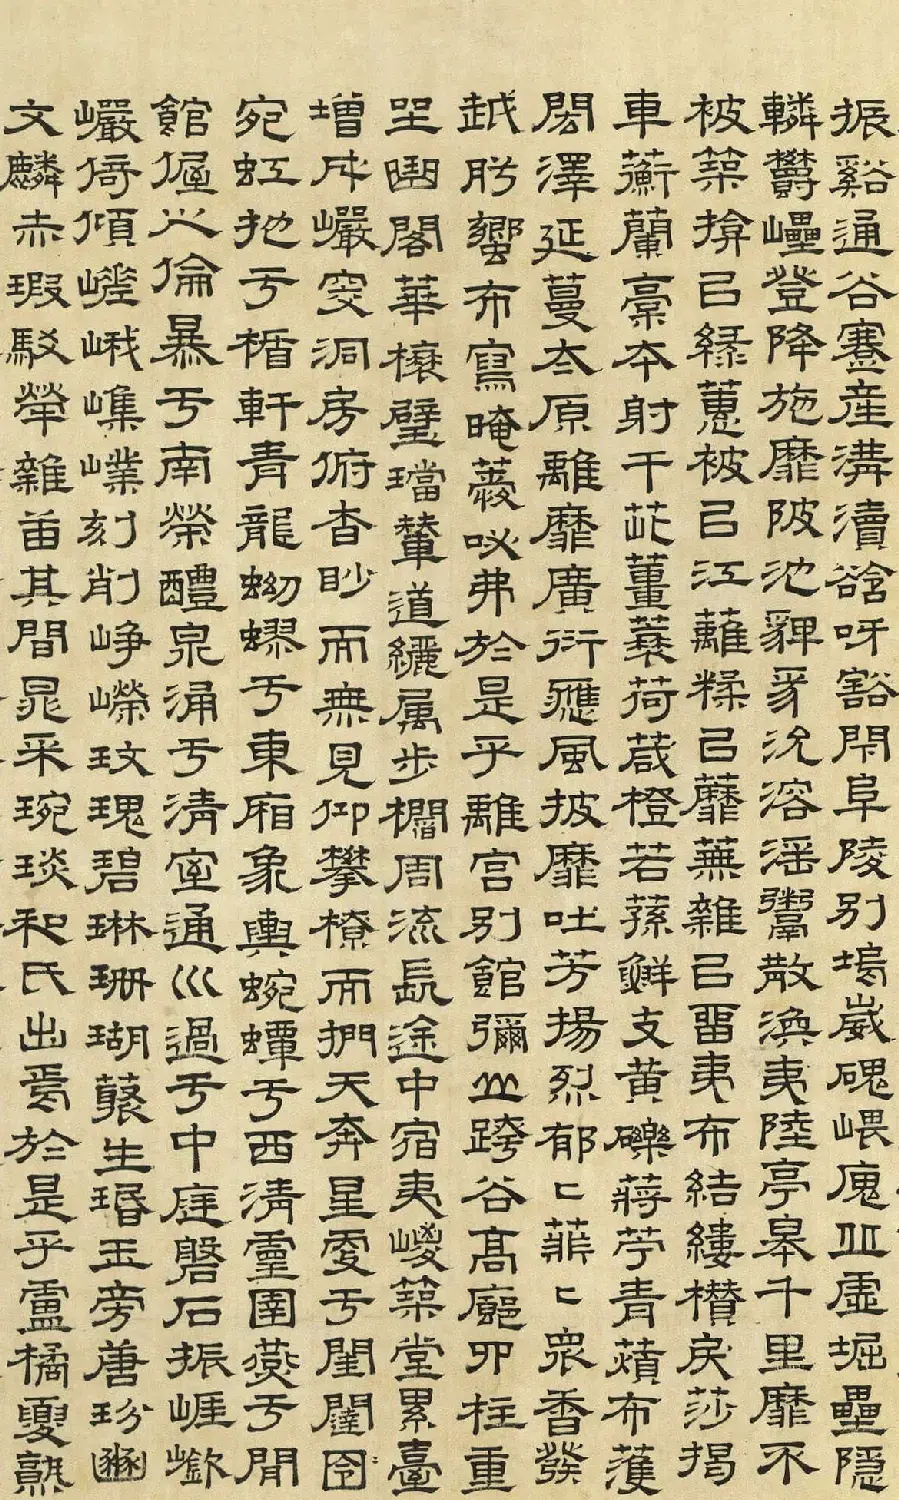 振谿通谷蹇産溝瀆谽呀豁閕阜陵別塢崴磈嵔廆丘虛堀壘隱
轔鬱壘登降施靡陂池貏豸沇溶淫鬻散渙夷陸亭皋千里靡不
被築揜以綠蕙被以江蘺糅以蘼蕪雜以留夷布結縷欑戾莎揭
車蘅蘭稾本射干茈薑蘘荷葴橙若蓀鮮支黃礫蔣芧青薠布濩
閎澤延蔓太原離靡廣衍應風披靡吐芳揚烈郁〻菲〻衆香發
越肸蠁布寫晻薆咇弗於是乎離宮別館彌山跨谷高廊四柱重
坐曲閣華榱璧璫輦道纚屬步櫩周流長途中宿夷嵕築堂累臺
增成巖窔洞房俯杳眇而無見仰攀橑而捫天奔星更于閨闥
宛虹扡于楯軒青龍蚴蟉于東廂象輿蜿蟬于西清靈圄燕于閒
館偓之倫暴于南榮醴泉涌于清室通川過于中庭磐石振崖嶔
巖倚傾嵯峨嶕嶫刻削崢嶸玫瑰碧琳珊瑚叢生瑉玉旁唐玢豳
文麟赤瑕駮犖雜臿其間晁采琬琰和氏出焉於是乎盧橘夏熟